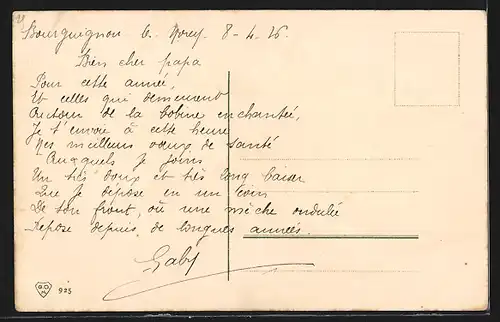 Bourguignon 8-4-26.
Bien cher papa
Pour cette année,
Et celles qui demeurent
Autour de la bobine enchantée,
Je t'envoie à cette heure
Mes meilleurs vœux de santé
Auxquels je joins
Un très doux et très long baiser
Que je dépose en un coin
De ton front, où une mèche ondulée
Repose depuis de longues années.
Gaby
925